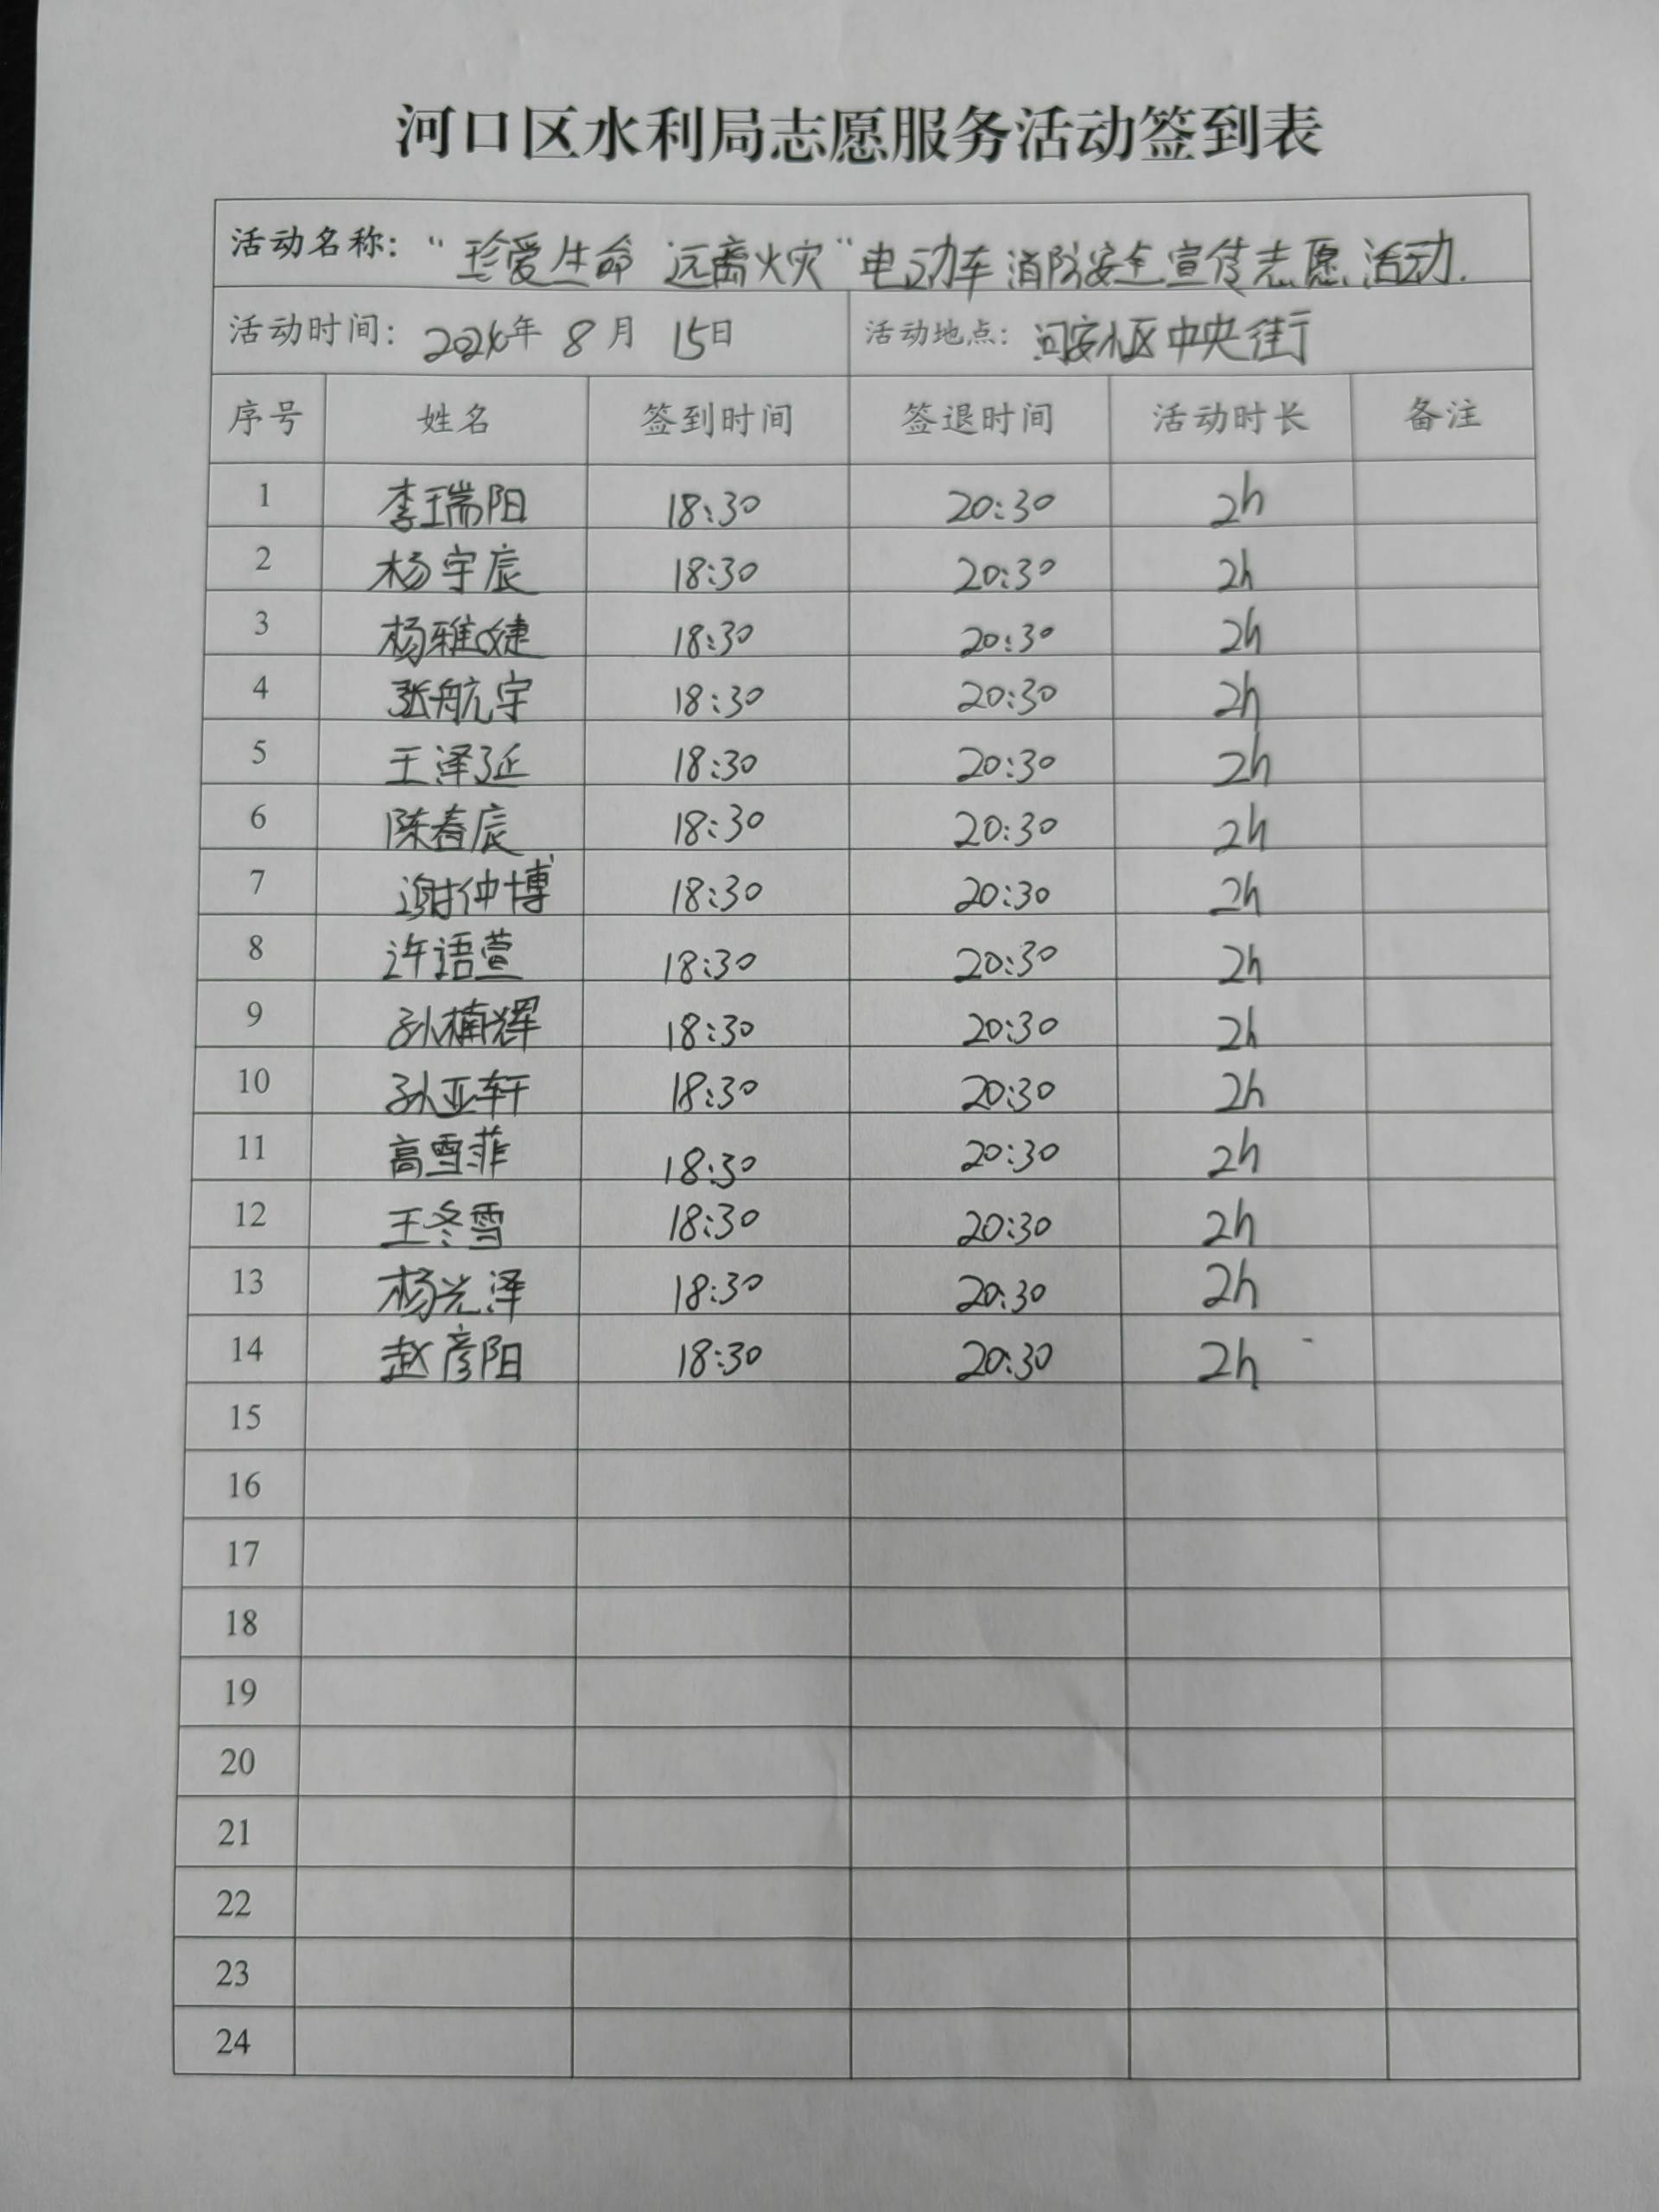 河口区水利局志愿服务活动签到表
活动名称：“珍爱生命 远离火灾”电动车消防安全宣传志愿活动.
活动时间：2024年 8月 15日 活动地点：河安小区中央街
序号 姓名 签到时间 签退时间 活动时长 备注
1 李瑞阳 18:30 20:30 2h
2 杨宇辰 18:30 20:30 2h
3 杨雅婕 18:30 20:30 2h
4 张航宇 18:30 20:30 2h
5 王泽延 18:30 20:30 2h
6 陈春辰 18:30 20:30 2h
7 谢仲博 18:30 20:30 2h
8 许语萱 18:30 20:30 2h
9 孙楠辉 18:30 20:30 2h
10 孙亚轩 18:30 20:30 2h
11 高雪菲 18:30 20:30 2h
12 王冬雪 18:30 20:30 2h
13 杨光泽 18:30 20:30 2h
14 赵彦阳 18:30 20:30 2h
15
16
17
18
19
20
21
22
23
24